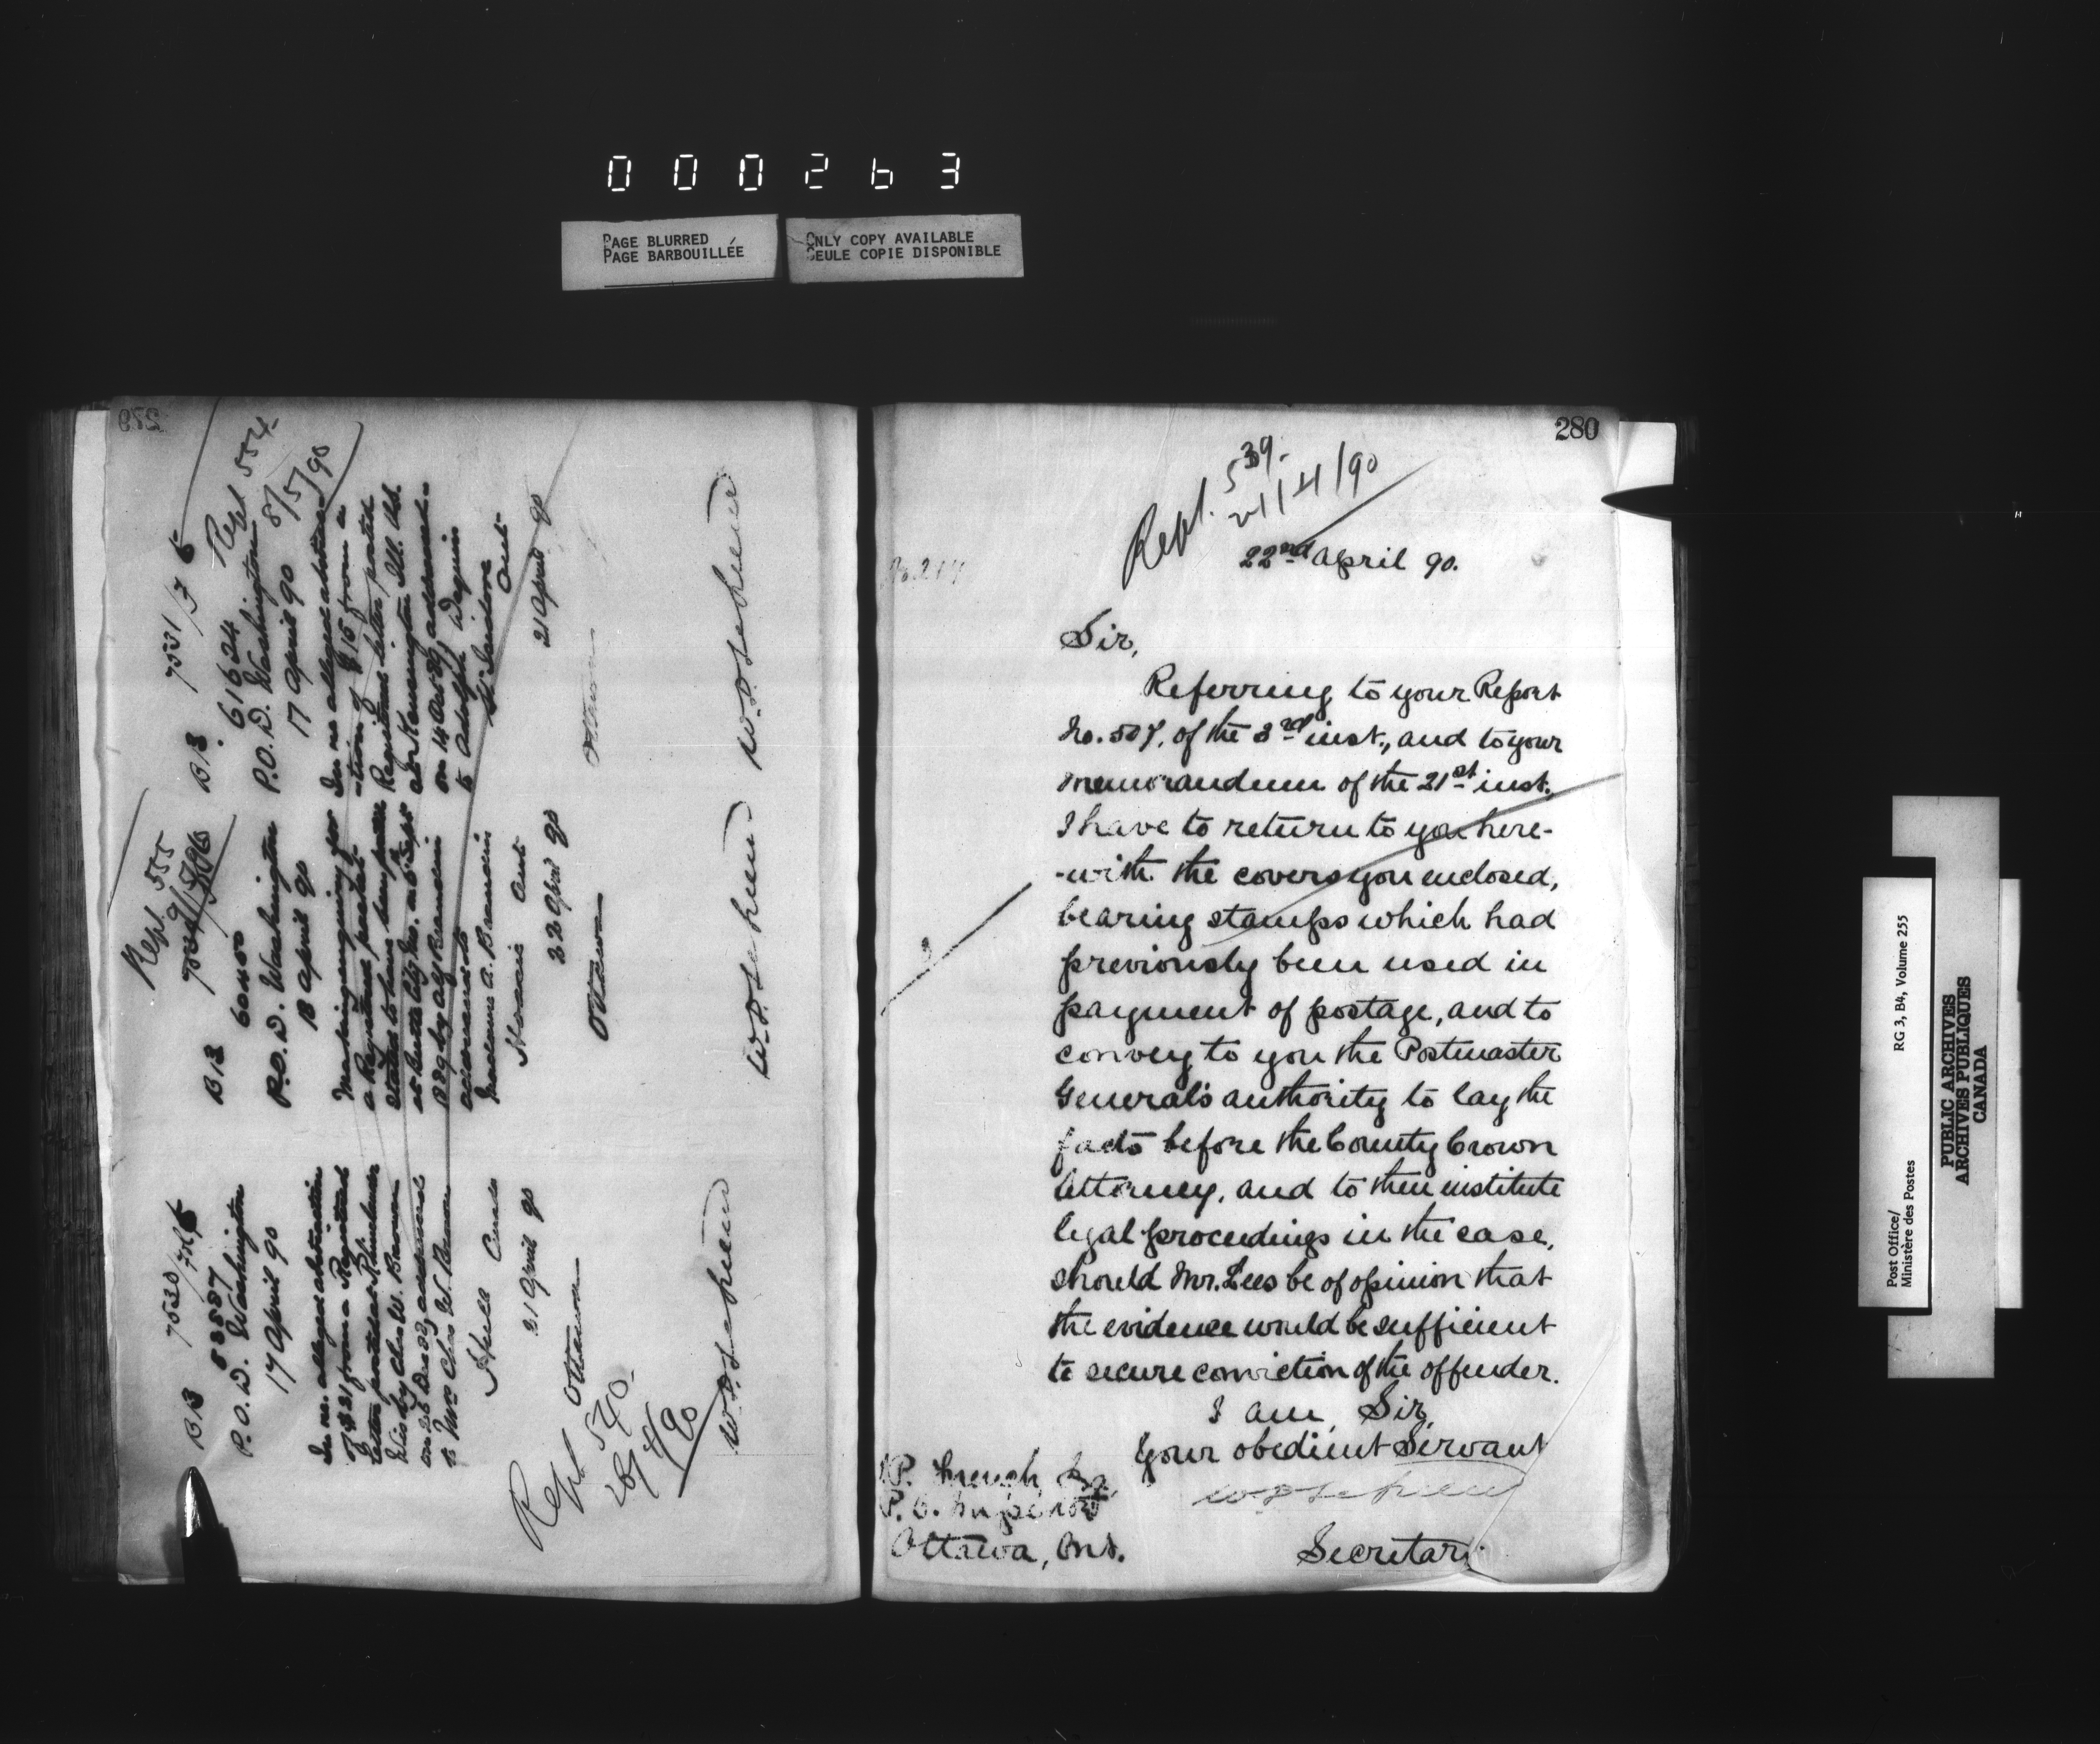 000263
PAGE BLURRED
PAGE BARBOUILLÉE
ONLY COPY AVAILABLE
SEULE COPIE DISPONIBLE
279
B 13 7530/
83887
P.O.D. Washington
17 April 90
In re. alleged abstraction
of $21 from a Registered
letter posted at
Wis by Chs W. Brown
on 26 Dec 89 addressed
to Mrs Chs W. Brown
21 April 90
Ottawa
Rept 540.
28/4/90
Rept. 555
B 13
60400
P.O.D. Washington
18 April 90
Making enquiry for
a Registered packet
stated to have been
addressed to
Madame A.
Ont
22 April 90
Ottawa
B 13. 7531/
Rept 554
8/5/90
61624
P.O.D. Washington
17 April 90
In re alleged abstrac
-tion of $15 from a
Registered letter posted
at Kennington Ill. U.S.
on 14 addressed
to Adolph
St. Isidore
Ont.
21 April 90
Ottawa
280
Rept. 539.
21/4/90
22nd April 90.
Sir,
Referring to your Report
No. 507. of the 3rd inst., and to your
memorandum of the 21st inst.
I have to return to you here-
-with the covers you enclosed,
bearing stamps which had
previously been used in
payment of postage, and to
convey to you the Postmaster
General's authority to lay the
facts before the County Crown
Attorney, and to then institute
legal proceedings in the case,
should Mr. Lees be of opinion that
the evidence would be sufficient
to secure conviction of the offender.
I am, Sir,
Your obedient Servant
Secretary
P. French Esq
P.O. Inspector
Ottawa, Ont.
Post Office/
Ministère des Postes
RG 3, B4, Volume 255
PUBLIC ARCHIVES
ARCHIVES PUBLIQUES
CANADA